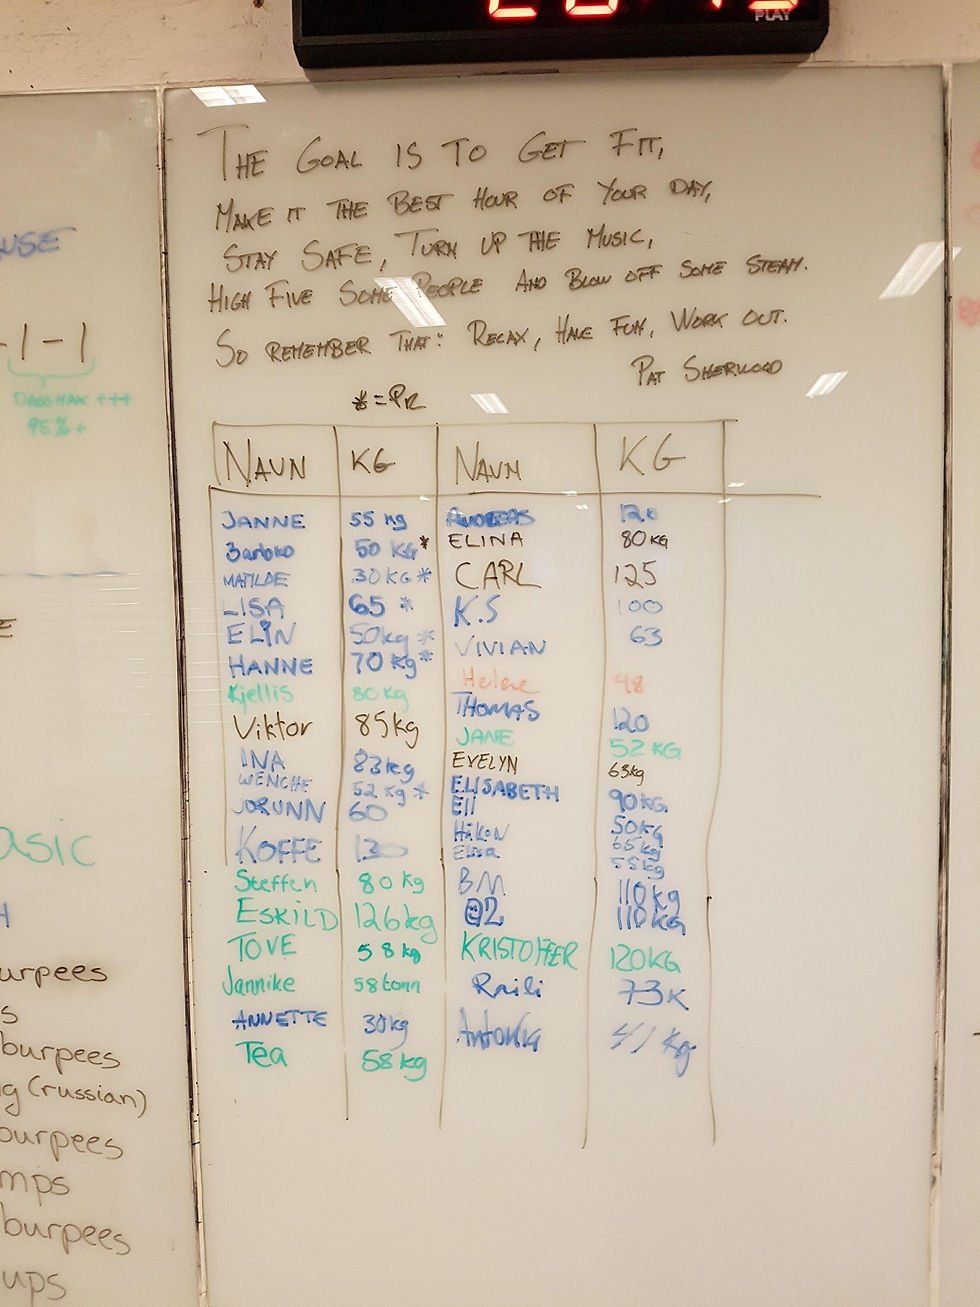 PLAY
THE GOAL IS TO GET FIT,
MAKE IT THE BEST HOUR OF YOUR DAY,
STAY SAFE, TURN UP THE MUSIC,
HIGH FIVE SOME PEOPLE AND BLOW OFF SOME STEAM.
SO REMEMBER THAT: RELAX, HAVE FUN, WORK OUT.
PAT SHERWOOD
* = PR
NAVN KG NAVN KG
JANNE 55 kg ANDREAS 120
50 KG* ELINA 80 KG
MATILDE 30 KG * CARL 125
LISA 65 * K.S 100
ELIN 50kg * VIVIAN 63
HANNE 70 kg* Helene 48
Kjellis 80 kg THOMAS 120
Viktor 85kg JANE 52 KG
INA 83kg EVELYN 63kg
WENCHE 52 kg * ELISABETH 90KG.
JORUNN 60 Eli 50KG
KOFFE 130 Håkon 65kg
Elisa 55kg
Steffen 80 kg BM 110kg
ESKILD 126kg 110KG
TOVE 58 kg KRISTOFFER 120KG
Jannike 58tonn Raili 73K
ANNETTE 30kg Antonia 41 kg
Tea 58 kg
-1-1
DAGSMAX +++
95% +
ASIC
burpees
burpees
(russian)
burpees
burpees
ups